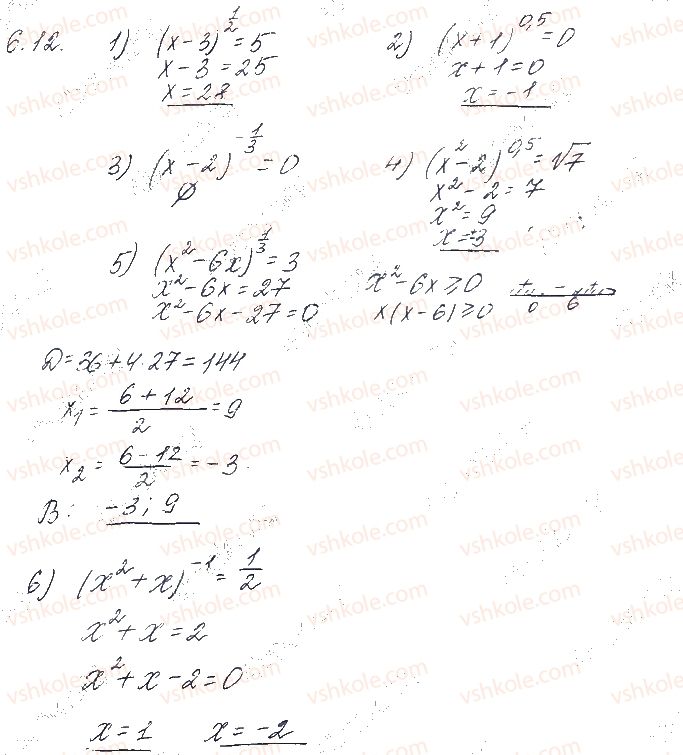 6.12. 1) (x-3)^{1/2} = 5 2) (x+1)^{0,5} = 0
x-3=25 x+1=0
x=28 x=-1
3) (x-2)^{-1/3} = 0 4) (x^2-2)^{0,5} = √7
∅ x^2-2=7
x^2=9
x=±3
5) (x^2-6x)^{1/3} = 3 x^2-6x≥0 + - +
x^2-6x=27 x(x-6)≥0 0 6
x^2-6x-27=0
D=36+4·27=144
x_1 = (6+12)/2 = 9
x_2 = (6-12)/2 = -3
В: -3; 9
6) (x^2+x)^{-1} = 1/2
x^2+x=2
x^2+x-2=0
x=1 x=-2
vshkole.com